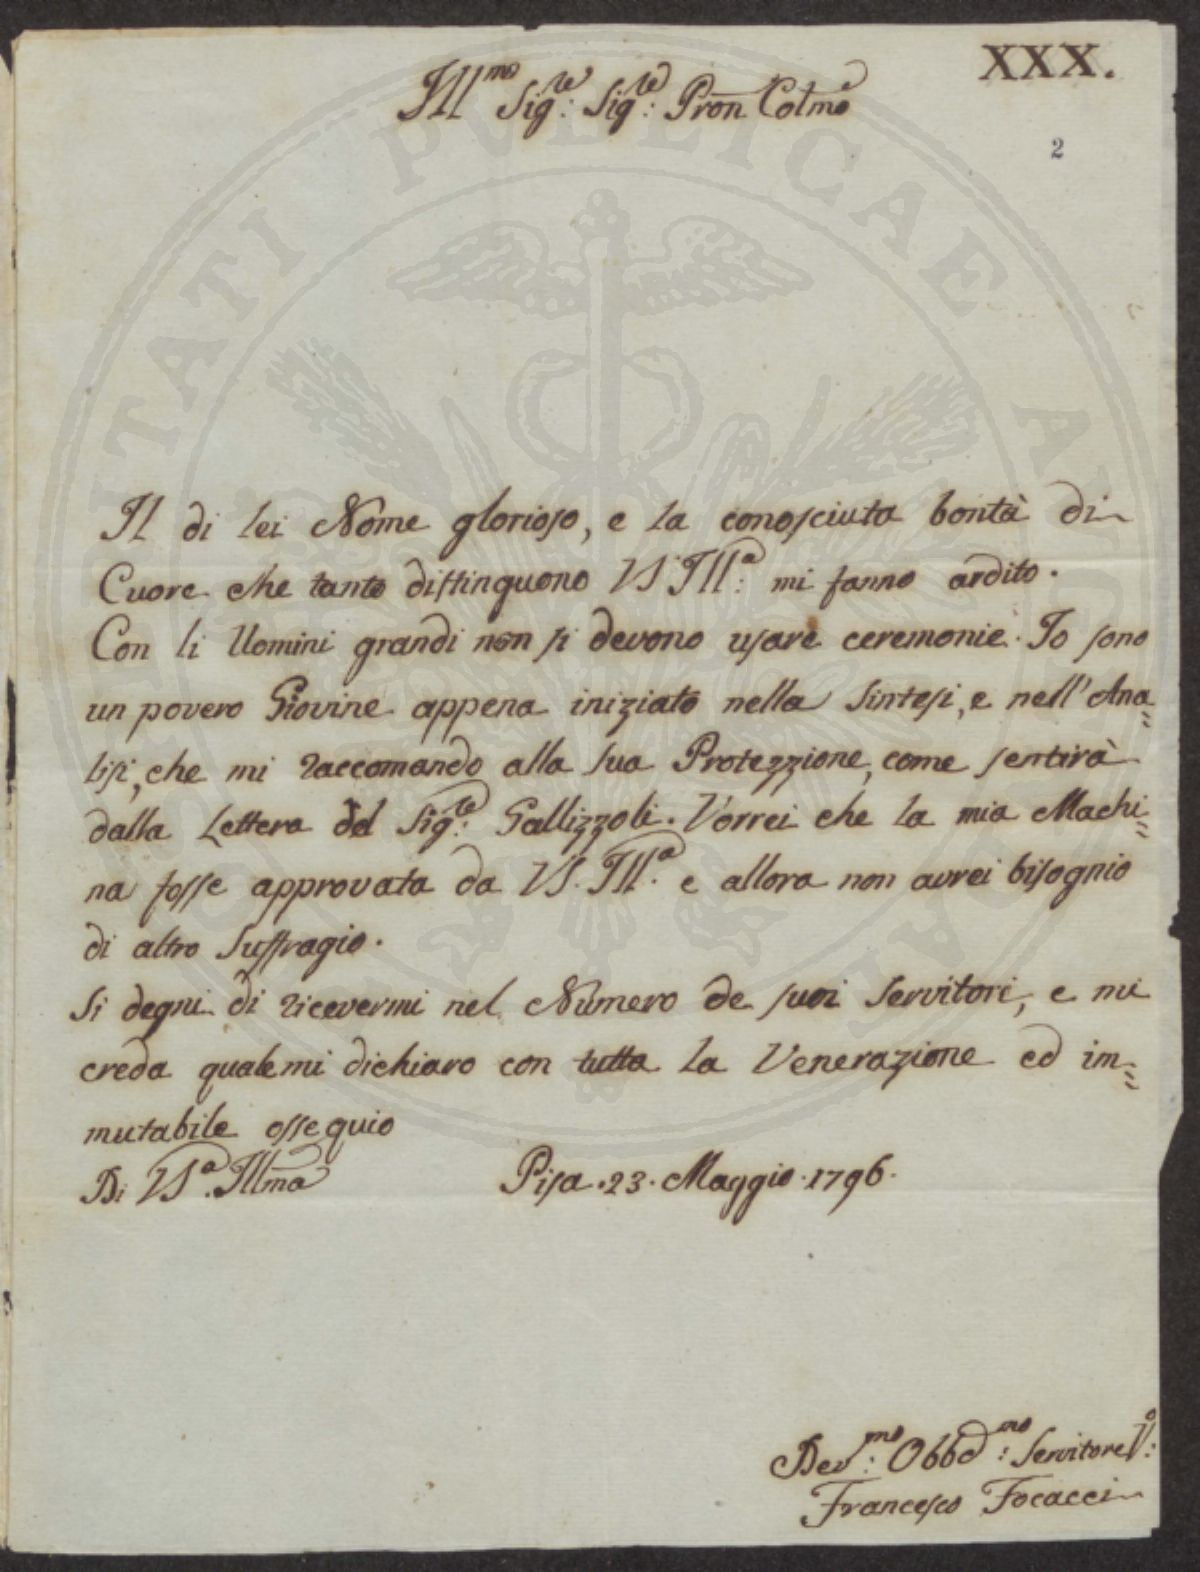 XXX.
Ill.mo Sig.re: Sig.re: Pron Colmo
2
Il di lei Nome glorioso, e la conosciuta bontà di
Cuore che tanto distinguono VS Ill.a: mi fanno ardito.
Con li Uomini grandi non si devono usare ceremonie. Io sono
un povero Giovine appena iniziato nella Sintesi, e nell'Ana=
lisi, che mi raccomando alla sua Protezzione, come sentirà
dalla Lettera del Sig.re: Gallizzoli. Vorrei che la mia Machi=
na fosse approvata da VS. Ill.a e allora non avrei bisognio
di altro Suffragio.
Si degni di ricevermi nel Numero de suoi Servitori, e mi
creda quale mi dichiaro con tutta la Venerazione ed im=
mutabile ossequio
Di VS.a Illma Pisa. 23. Maggio. 1796.
Dev.mo: Obbd.mo: Servitore V.o:
Francesco Focacci
SOCIETATI PVBLICAE AVGENDAE